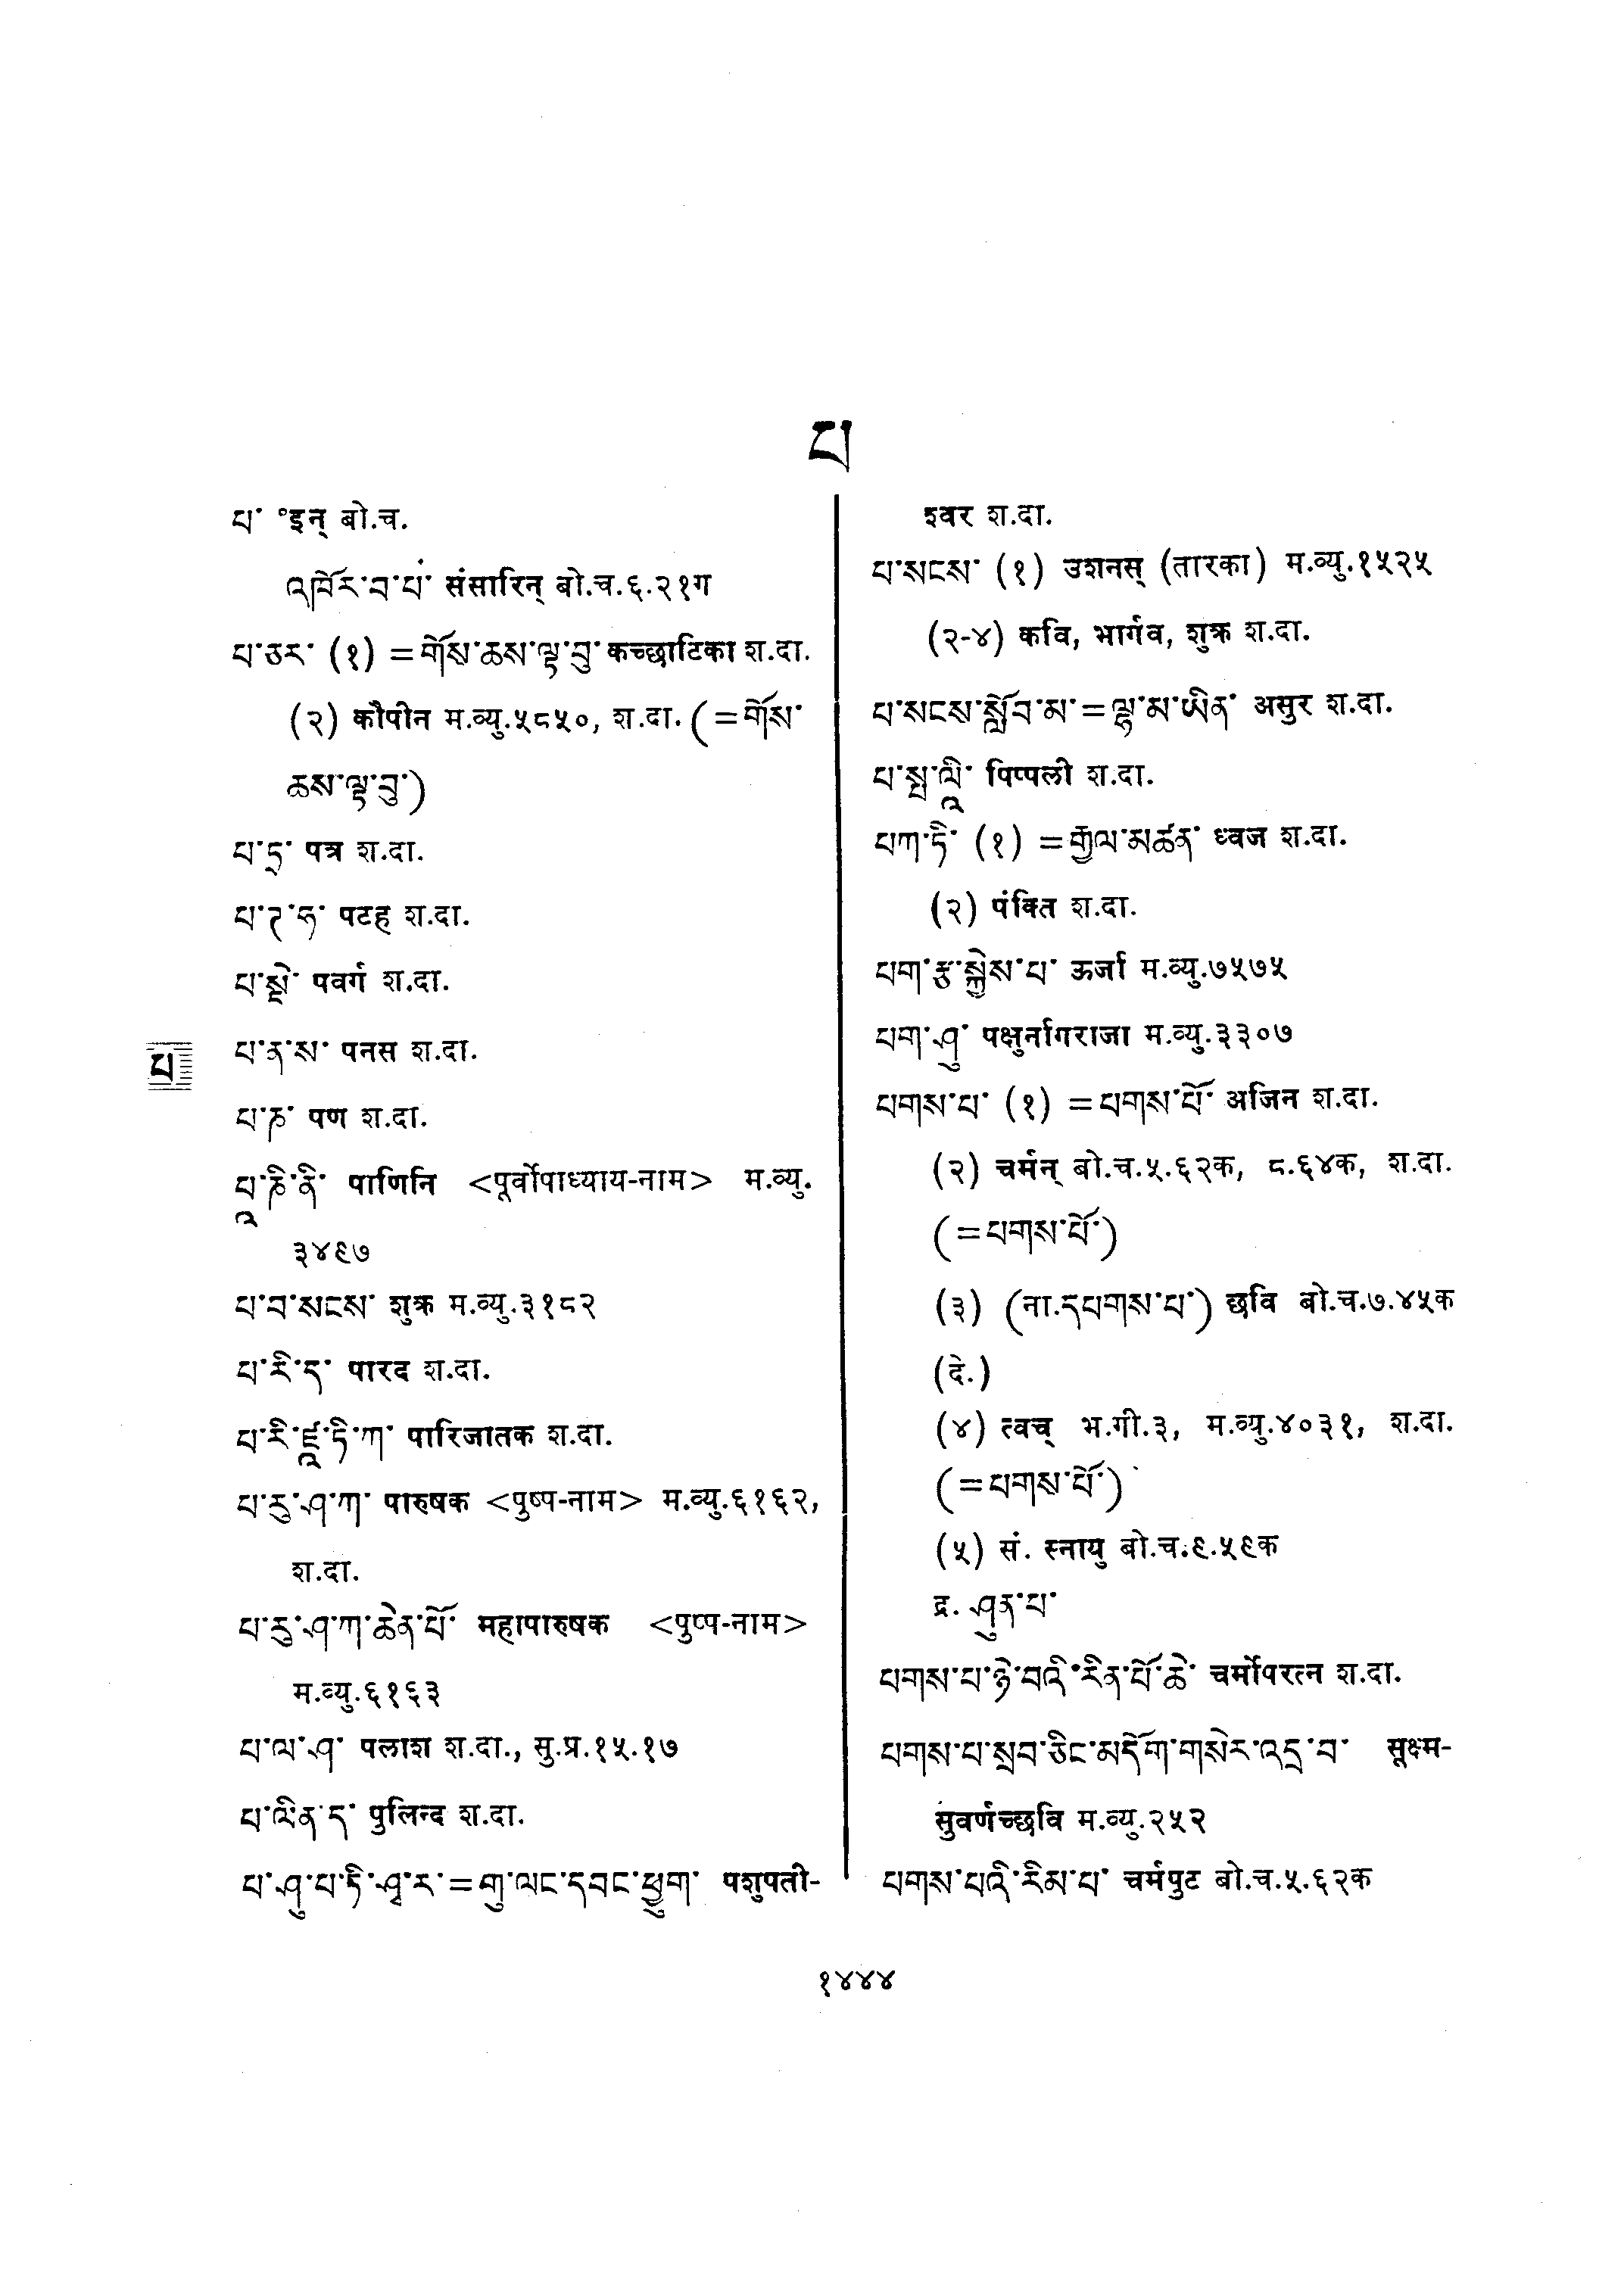 པ
པ་ °इन् बो.च.
འཁོར་བ་པ་ संसारिन् बो.च.६.२१ग
པ་ཅར་ (१) =གོས་ཆས་ལྟ་བུ་ कच्छाटिका श.दा.
(२) कौपीन म.व्यु.५८५०, श.दा. (=གོས་
ཆས་ལྟ་བུ་)
པ་ཏྲ་ पत्र श.दा.
པ་ཊ་ཧ་ पटह श.दा.
པ་སྡེ་ पवर्ग श.दा.
པ་ན་ས་ पनस श.दा.
པ
པ་ཎ་ पण श.दा.
པཱ་ཎི་ནི་ पाणिनि <पूर्वोपाध्याय-नाम> म.व्यु.
३४९७
པ་བ་སངས་ शुक्र म.व्यु.३१८२
པ་རི་ད་ पारद श.दा.
པ་རི་ཛཱ་ཏི་ཀ་ पारिजातक श.दा.
པ་རུ་ཤ་ཀ་ पारुषक <पुष्प-नाम> म.व्यु.६१६२,
श.दा.
པ་རུ་ཤ་ཀ་ཆེན་པོ་ महापारुषक <पुष्प-नाम>
म.व्यु.६१६३
པ་ལ་ཤ་ पलाश श.दा., सु.प्र.१५.१७
པ་ལིན་ད་ पुलिन्द श.दा.
པ་ཤུ་པ་ཏི་ཤྭ་ར་=གུ་ལང་དབང་ཕྱུག་ पशुपती-
श्वर श.दा.
པ་སངས་ (१) उशनस् (तारका) म.व्यु.१५२५
(२-४) कवि, भार्गव, शुक्र श.दा.
པ་སངས་སློབ་མ་=ལྷ་མ་ཡིན་ असुर श.दा.
པ་སྤ་ལཱི་ पिप्पली श.दा.
པཀ་ཏི་ (१) =རྒྱལ་མཚན་ ध्वज श.दा.
(२) पंक्ति श.दा.
པག་རྩ་སྐྱེས་པ་ ऊर्जा म.व्यु.७५७५
པག་ཤུ་ पक्षुर्नागराजा म.व्यु.३३०७
པགས་པ་ (१) =པགས་པོ་ अजिन श.दा.
(२) चर्मन् बो.च.५.६२क, ८.६४क, श.दा.
(=པགས་པོ་)
(३) (ना.དཔགས་པ་) छवि बो.च.७.४५क
(दे.)
(४) त्वच् भ.गी.३, म.व्यु.४०३१, श.दा.
(=པགས་པོ་)
(५) सं. स्नायु बो.च.९.५९क
द्र. ཤུན་པ་
པགས་པ་ཉེ་བའི་རིན་པོ་ཆེ་ चर्मोपरत्न श.दा.
པགས་པ་སྲབ་ཅིང་མདོག་གསེར་འདྲ་བ་ सूक्ष्म-
सुवर्णच्छवि म.व्यु.२५२
པགས་པའི་རིམ་པ་ चर्मपुट बो.च.५.६२क
१४४४